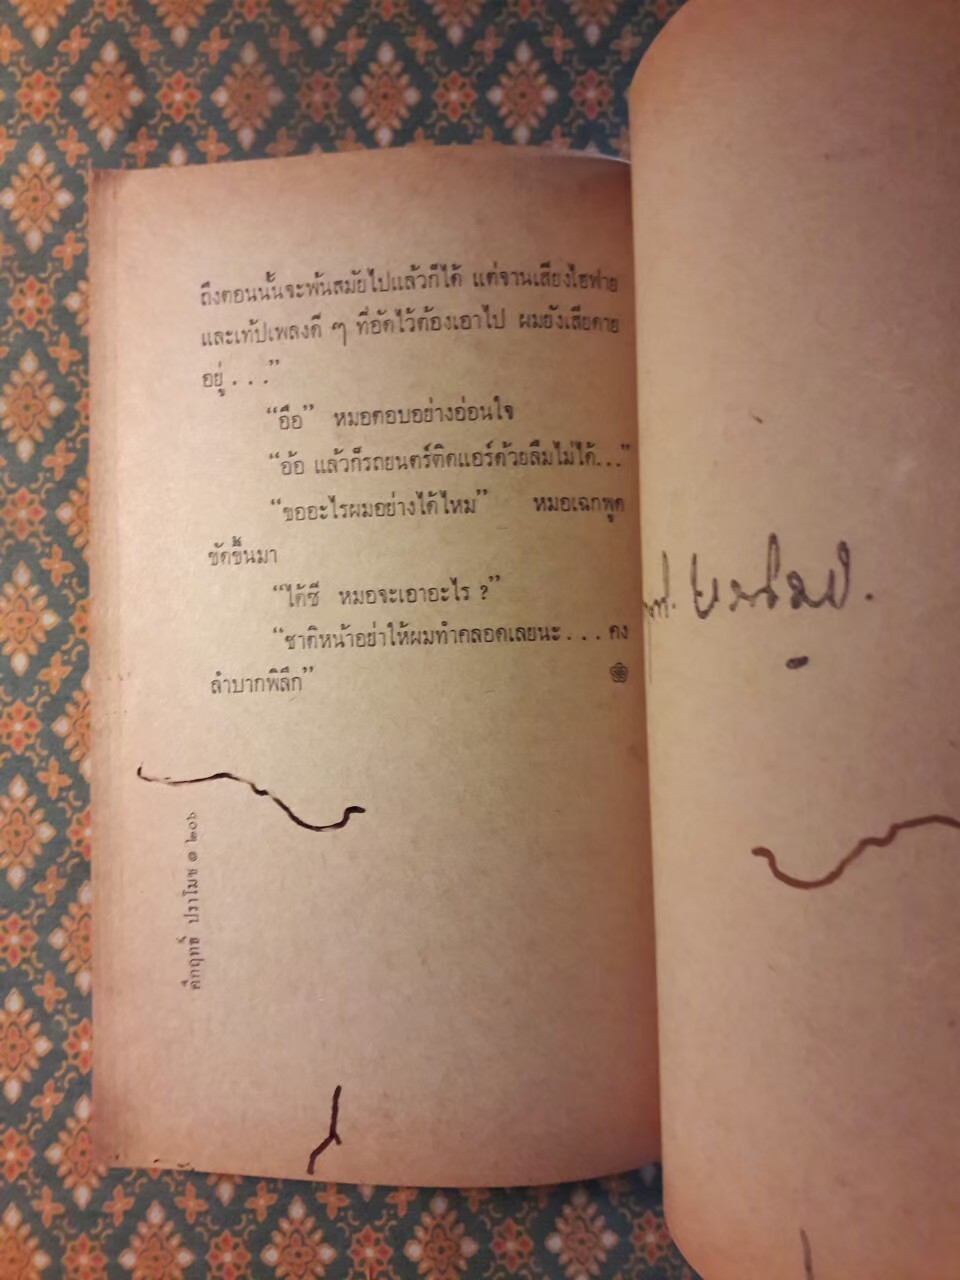 ถึงตอนนั้นจะพ้นสมัยไปแล้วก็ได้ แต่จานเสียงไฮฟาย
และเท้ปเพลงดี ๆ ที่อัดไว้ต้องเอาไป ผมยังเสียดาย
อยู่ . . .”
“อือ” หมอตอบอย่างอ่อนใจ
“อ้อ แล้วก็รถยนตร์ติดแอร์ด้วยลืมไม่ได้...”
“ขออะไรผมอย่างได้ไหม” หมอเฉกพูด
ขัดขึ้นมา
“ได้ซี หมอจะเอาอะไร ?”
“ชาติหน้าอย่าให้ผมทำคลอดเลยนะ . . . คง
ลำบากพิลึก”
คึกฤทธิ์ ปราโมช ๑ ๒๐๖